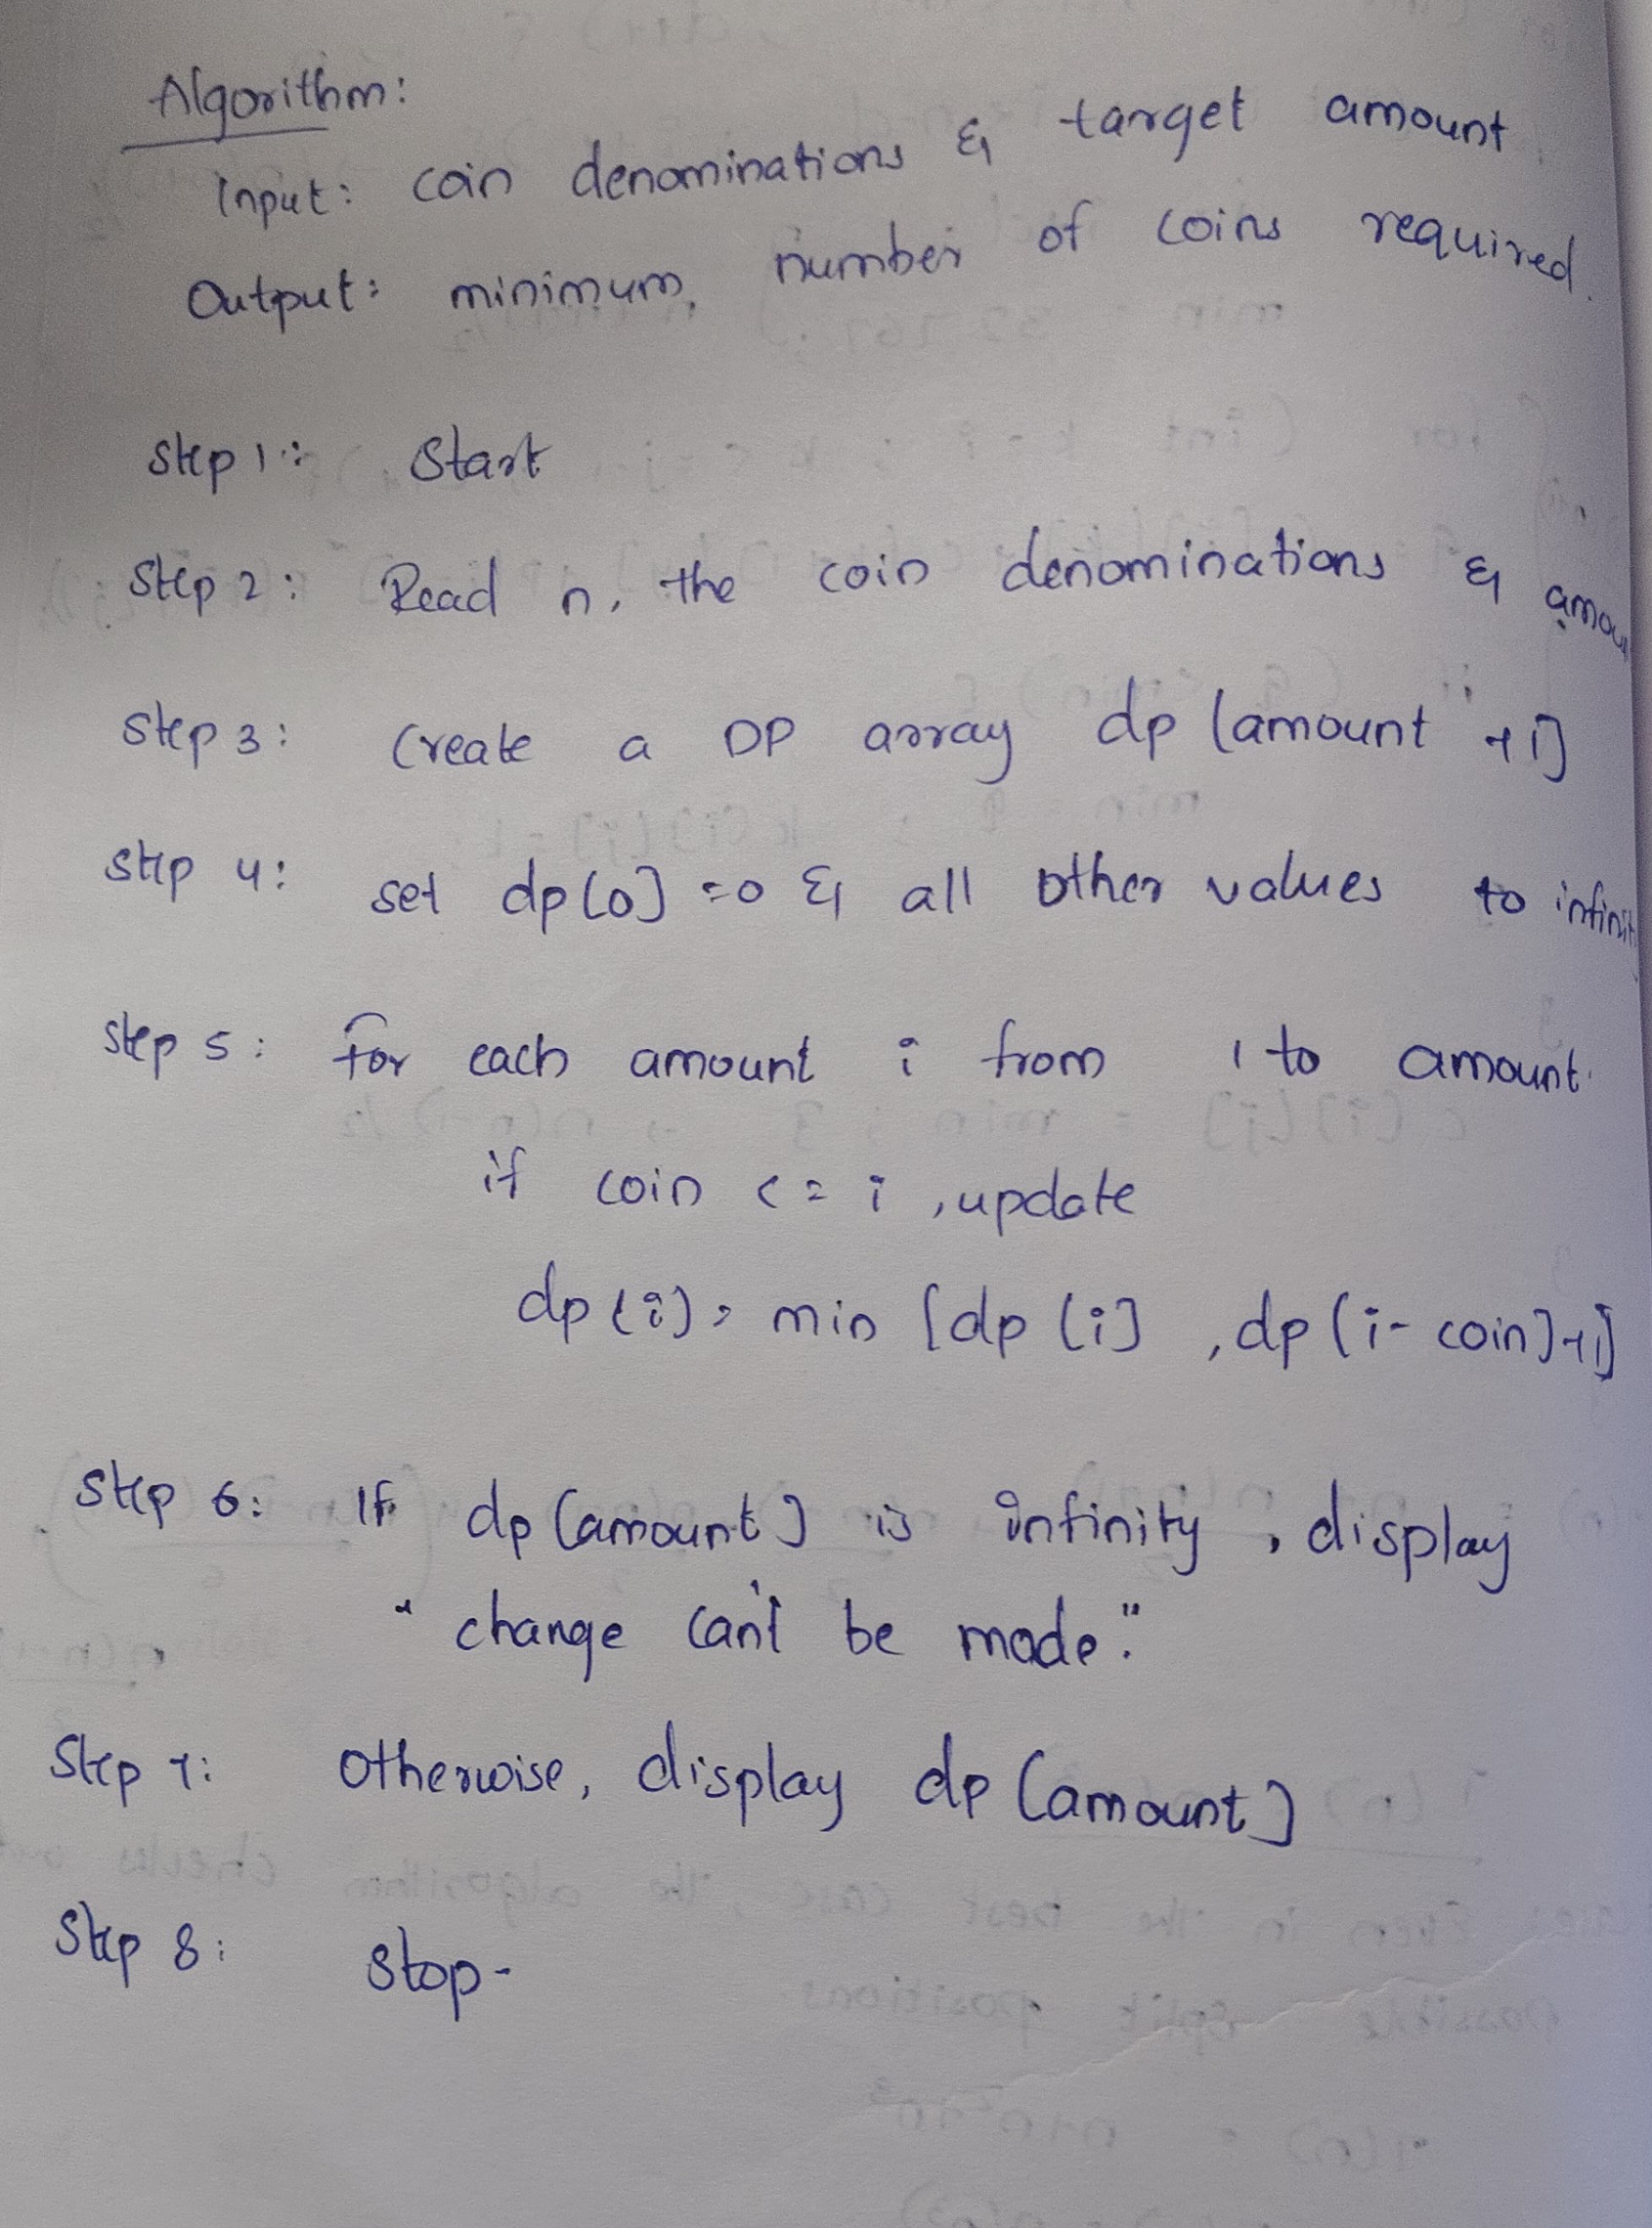 Algorithm:
Input: coin denominations & target amount
Output: minimum number of coins required.
Step 1: Start
Step 2: Read n, the coin denominations & amou
Step 3: Create a DP array dp[amount +1]
Step 4: set dp[0] = 0 & all other values to infinit
Step 5: For each amount i from 1 to amount.
if coin <= i , update
dp(i) = min [dp[i] , dp[i- coin]+1]
Step 6: If dp[amount] is infinity, display
"change can't be made."
Step 7: Otherwise, display dp[amount]
Step 8: Stop-